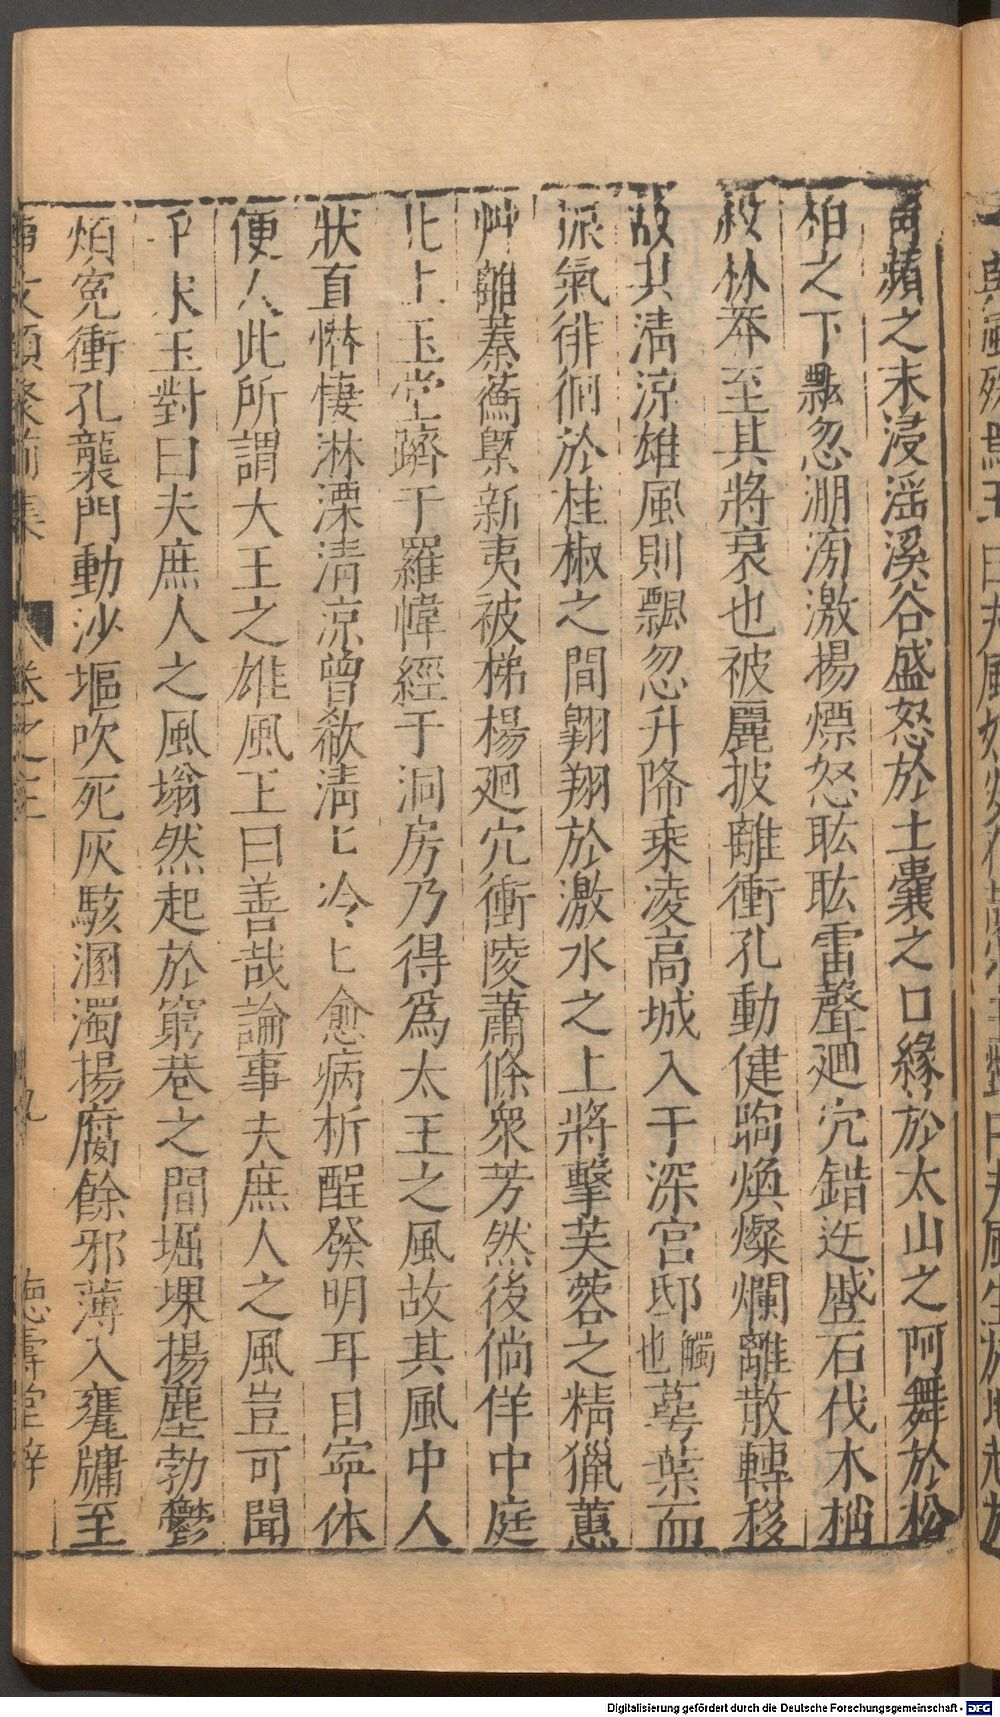 青蘋之末浸滛溪谷盛怒於土囊之口緣於太山之阿舞於松
柏之下飄忽淜滂激揚熛怒耾耾雷聲廻穴錯迕蹷石伐木梢
殺林莽至其將衰也被麗披離衝孔動健眴煥燦爛離散轉移
故其清凉雄風則飄忽升降乗凌高城入于深宫邸觸也蕚葉而
振氣徘徊於桂椒之間翺翔於激水之上將擊芙蓉之精獵蕙
艸離蓁蘅槩新夷被梯楊廻穴衝陵蕭條衆芳然後倘佯中庭
北上玉堂躋于羅幃經于洞房乃得爲太王之風故其風中人
狀直憯悽淋溧清凉曾欷清匕冷匕愈病析酲發明耳目寧体
便人此所謂大王之雄風王曰善哉論事夫庶人之風豈可聞
乎宋玉對曰夫庶人之風塕然起於窮巷之間堀堁揚塵勃鬱
煩寃衝孔襲門動沙堀吹死灰駭溷濁揚腐餘邪薄入甕牖至
事文類聚前集 卷之三 九 德壽堂梓